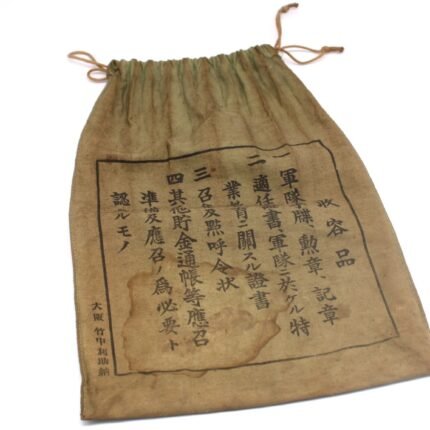 收容品
一 軍隊牒、勲章、記章
二 適任書、軍隊ニ於ケル特
業教育ニ關スル證書
三 召及點呼令狀
四 其他貯金通帳等應召
準備應召ノ爲必要ト
認ルモノ
大阪 竹中 納